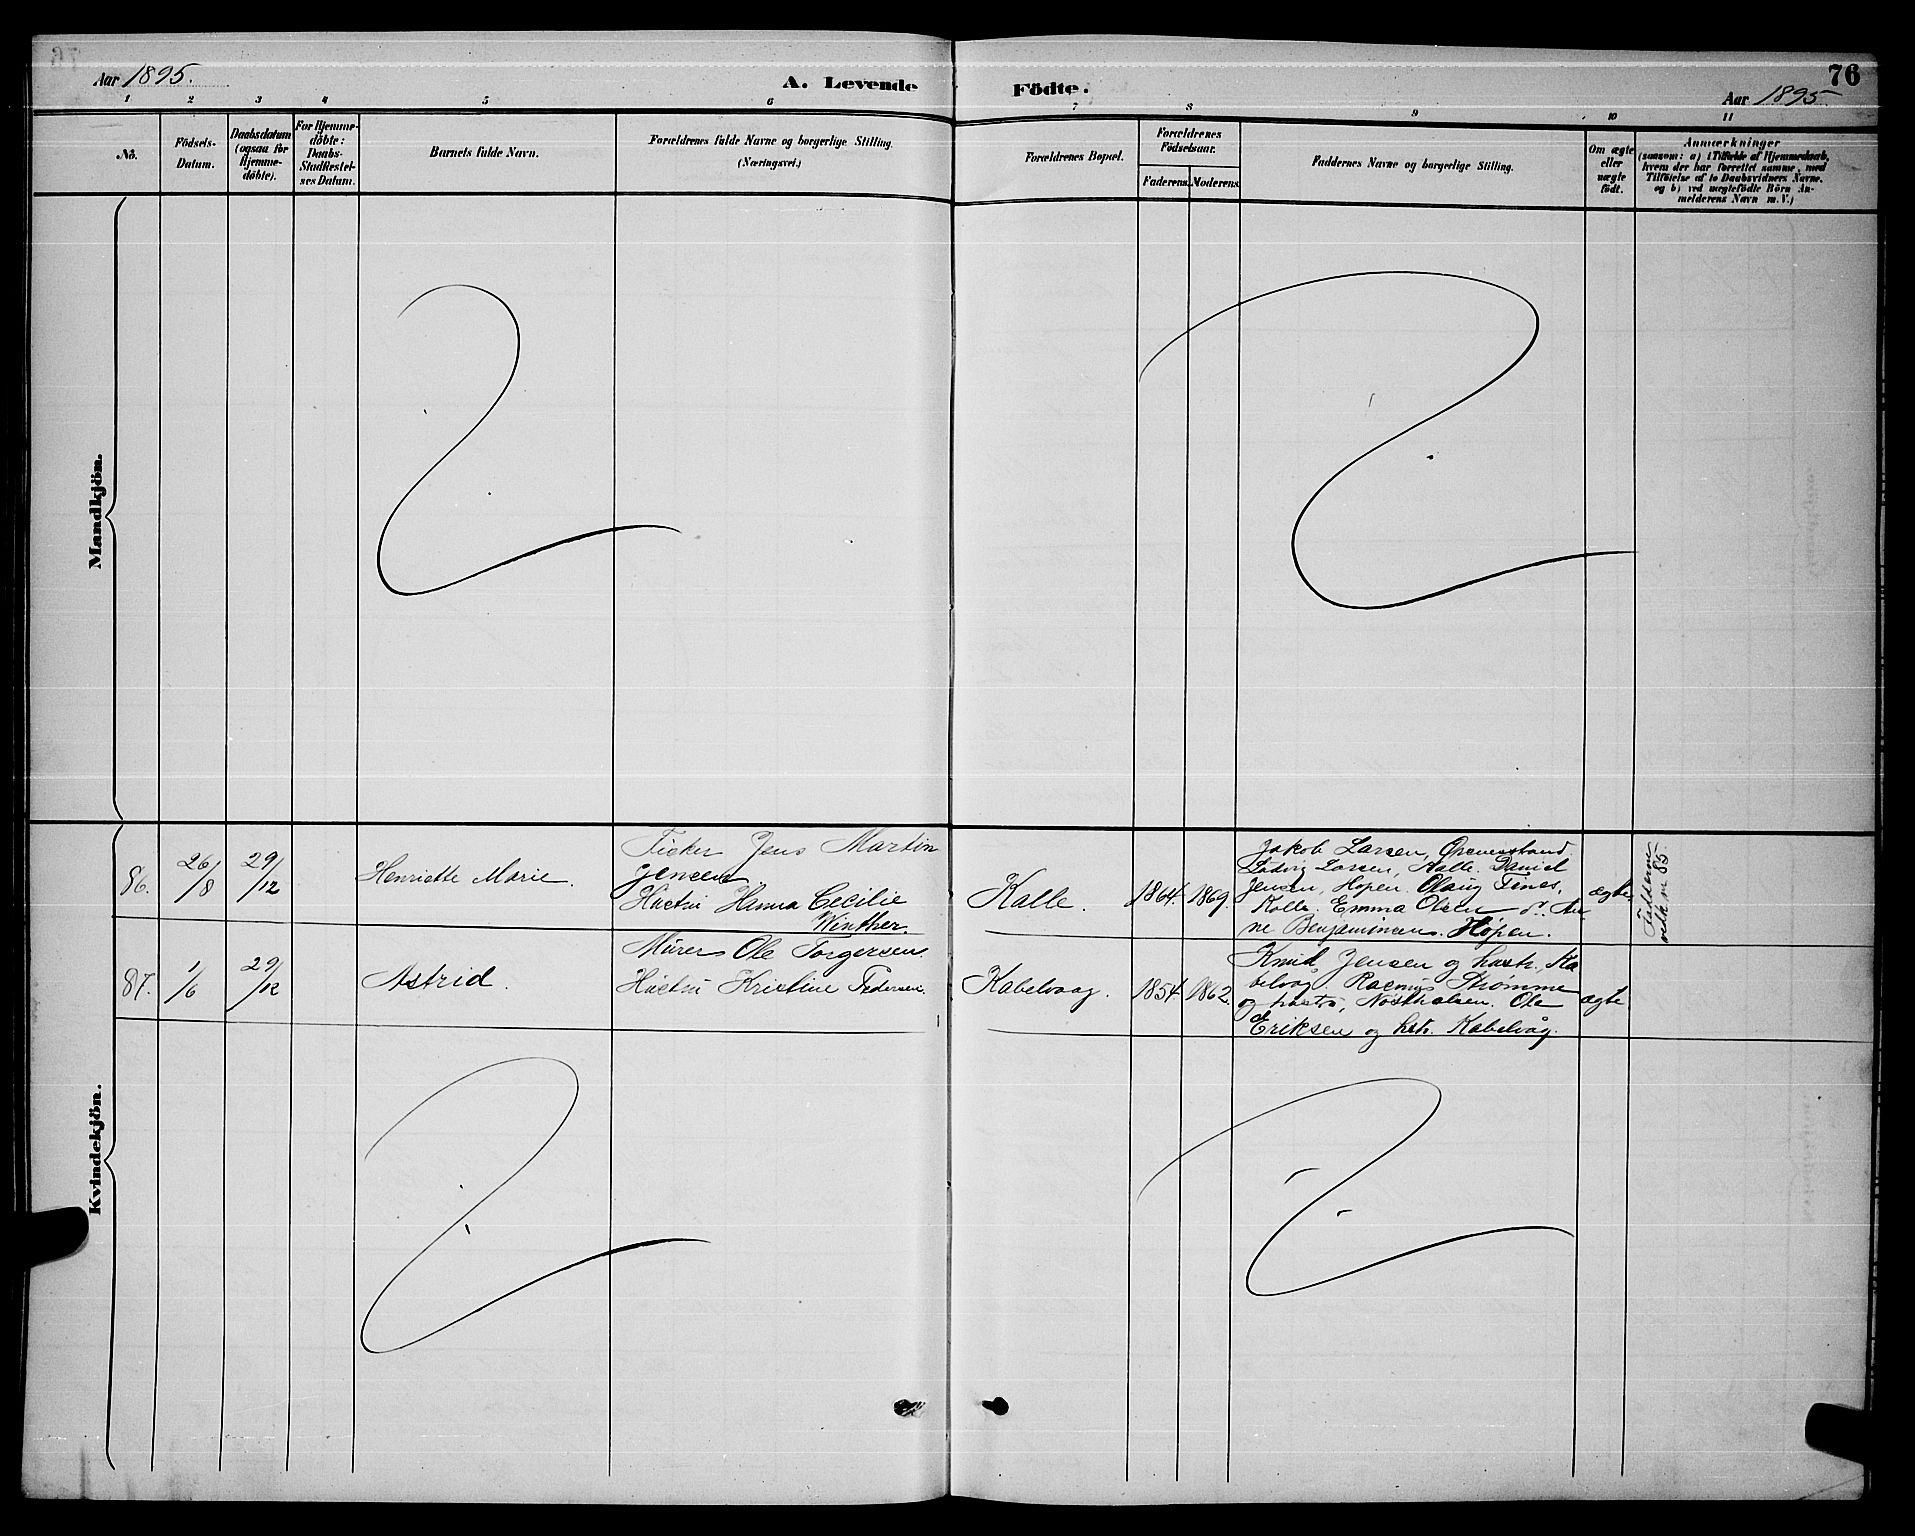 Aar 1895.
A. Levende
Födte.
76
Aar 1895
1 2 3 4 5 6 7 8 9 10 11
No.
Födsels-
Datum.
Daabsdatum
(ogsaa for
Hjemme-
döbte).
For Hjemme-
döbte:
Daabs-
Stadfæstel-
ses Datum.
Barnets fulde Navn.
Forældrenes fulde Navne og borgerlige Stilling.
(Næringsvei.)
Forældrenes Bopæl.
Forældrenes
Födselsaar.
Faderens. Moderens.
Faddernes Navne og borgerlige Stilling.
Om ægte
eller
uægte
födt.
Anmærkninger
(saasom: a) i Tilfælde af Hjemmedaab,
hvem der har forrettet samme, med
Tilföielse af to Daabsvidners Navne,
og b) ved uægtefödte Börn An-
melderens Navn m. V.)
Mandkjön.
Kvindekjön.
86.
26/8
29/12
Henriette Marie.
Fisker Jens Martin
Jensen
Hüstrü Hanna Cecilie
Winther.
Kalle.
1864. 1869.
Jakob Larsen,
Ludvig Larsen, Kalle. Daniel
Jensen, Hopen. Olaug Fines,
Kalle. Emma Olsen do. An-
ne Benjaminsen. Hopen.
ægte
Fadderne
85.
87.
1/6
29/12
Astrid.
Mürer Ole Torgersen
Hüstrü Kristine Pedersen.
Kabelvaag.
1854. 1862.
Knud Jensen og hustr. Ka-
belvåg. Rasmus Strømme
og hustr, Ole
Eriksen og hstr. Kabelvåg.
ægte